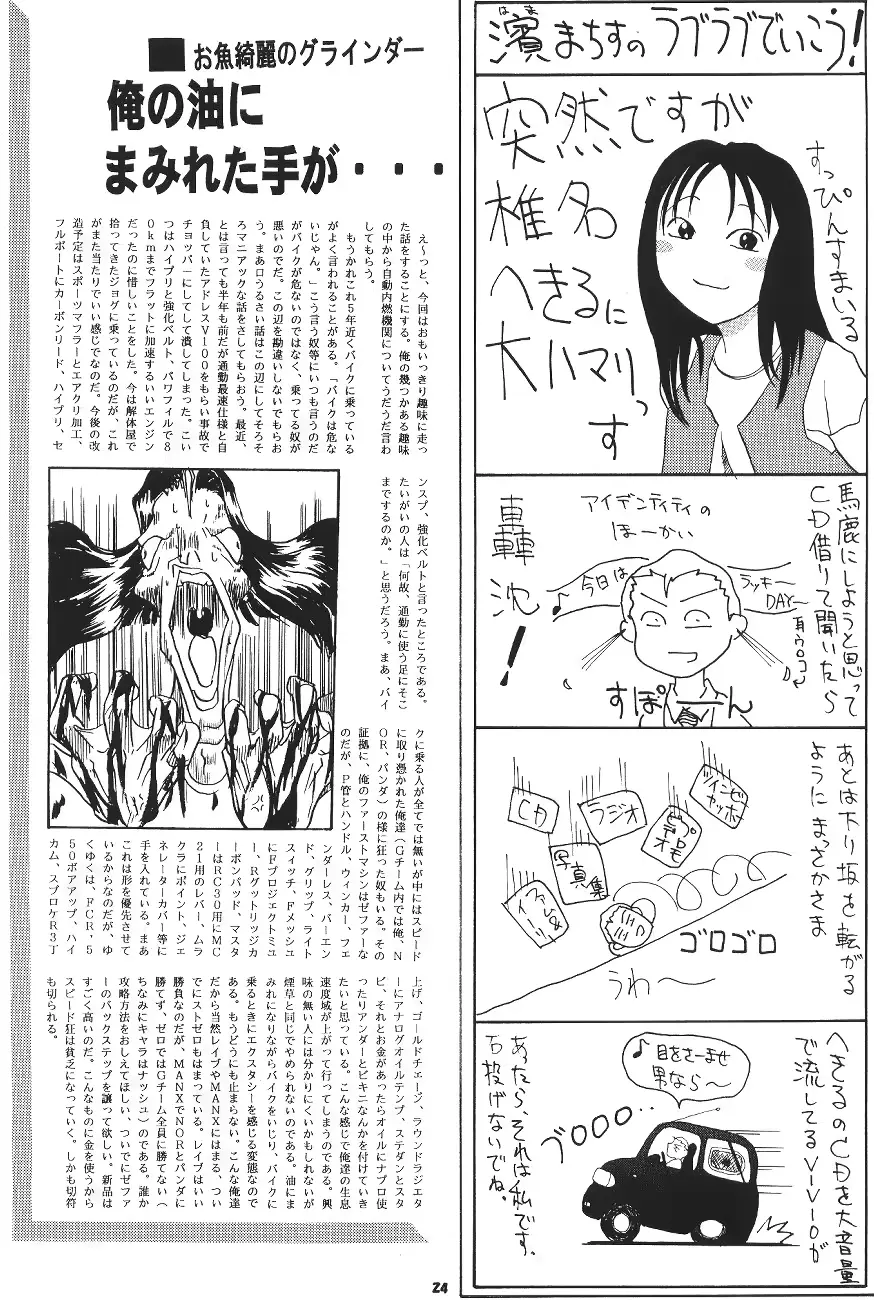 濱まちすのラブラブでいこう!
はま
突然ですが
椎名
へきるに
大ハマりっす
すっぴんすまいる
馬鹿にしようと思って
CD借りて聞いたら
アイデンティティの
ほーかい
轟沈!
♪今日は
ラッキー
DAY〜
耳ウロコ
すぽーん
あとは下り坂を転がる
ようにまっさかさま
CD
ラジオ
写真集
ゴロゴロ
うわ〜
へきるのCDを大音量
で流してるVIVIOが
あったら、それは私です。
石投げないでね。
♪目をさーませ
男なら〜
ブOOO‥
■お魚綺麗のグラインダー
俺の油に
まみれた手が・・・
え〜っと、今回はおもいっきり趣味に走っ
た話をすることにする。俺の幾つかある趣味
の中から自動内燃機関についてうだうだ言わ
してもらう。
もうかれこれ5年近くバイクに乗っている
がよく言われることがある。「バイクは危な
いじゃん。」こう言う奴等にいつも言うのだ
がバイクが危ないのではなく、乗ってる奴が
悪いのだ。この辺を勘違いしないでもらお
う。まあ口うるさい話はこの辺にしてそろそ
ろマニアックな話をさしてもらおう。最近、
とは言っても半年も前だが通勤最速仕様と自
負していたアドレスV100をもらい事故で
チョッパーにしてして潰してしまった。こい
つはハイプリと強化ベルト、パワフィルで8
0kmまでフラットに加速するいいエンジン
だったのに惜しいことをした。今は解体屋で
拾ってきたジョグに乗っているのだが、これ
がまた当たりでいい感じでなのだ。今後の改
造予定はスポーツマフラーとエアクリ加工、
フルポートにカーボンリード、ハイプリ、セ
ンスプ、強化ベルトと言ったところである。
たいがいの人は「何故、通勤に使う足にそこ
までするのか。」と思うだろう。まあ、バイ
クに乗る人が全てでは無いが中にはスピード
に取り憑かれた俺達(Gチーム内では俺、N
OR、パンダ)の様に狂った奴もいる。その
証拠に、俺のファーストマシンはゼファーな
のだが、P管とハンドル、ウィンカー、フェ
ンダーレス、バーエン
ド、グリップ、ライト
スィッチ、Fメッシュ
にFプロジェクトミュ
ー、Rグットリッジカ
ーボンパッド、マスタ
ーはRC30用にMC
21用のレバー、ムラ
クラにポイント、ジェ
ネレーターカバー等に
手を入れている。まあ
これは形を優先させて
いるからなのだが、ゆ
くゆくは、FCR・5
50ボアアップ、ハイ
カム、スプロケR3丁
上げ、ゴールドチェーシ、ラウンドラジエタ
ーにアナログオイルテンプ、ステダンとスタ
ビ、それとお金があったらオイルにナプロ使
ったりアンダーとビキニなんかを付けていき
たいと思っている。こんな感じで俺達の生息
速度域が上がって行ってしまうのである。興
味の無い人には分かりにくいかもしれないが
煙草と同じでやめられないのである。油にま
みれになりながらバイクをいじり、バイクに
乗るときにエクスタシーを感じる変態なので
ある。もうどうにも止まらない。こんな俺達
だから当然レイブやMANXにはまる、つい
でにストゼロもはまっている。レイブはいい
勝負なのだが、MANXでNORとパンダに
勝てず、ゼロではGチーム全員に勝てない(
ちなみにキャラはナッシュ)のである。誰か
攻略方法をおしえてほしい、ついでにゼファ
ーのバックステップを譲って欲しい。新品は
すごく高いのだ。こんなものに金を使うから
スピード狂は貧乏になっていく。しかも切符
も切られる。
24